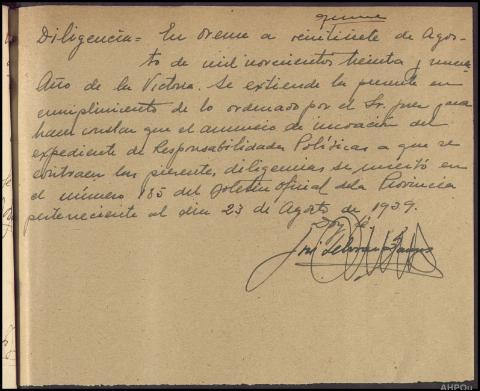 Diligencia = En Orense a veintisiete de Agos-
to de mil novecientos treinta y nueve
Año de la Victoria. Se extiende la presente en
cumplimiento de lo ordenado por el Sr. Juez para
hacer constar que el anuncio de incoación del
expediente de Responsabilidades Políticas a que se
contraen las presentes diligencias se insertó en
el número 185 del Boletín Oficial de la Provincia
perteneciente al dia 23 de Agosto de 1939.
Doy fe
José
AHPOu